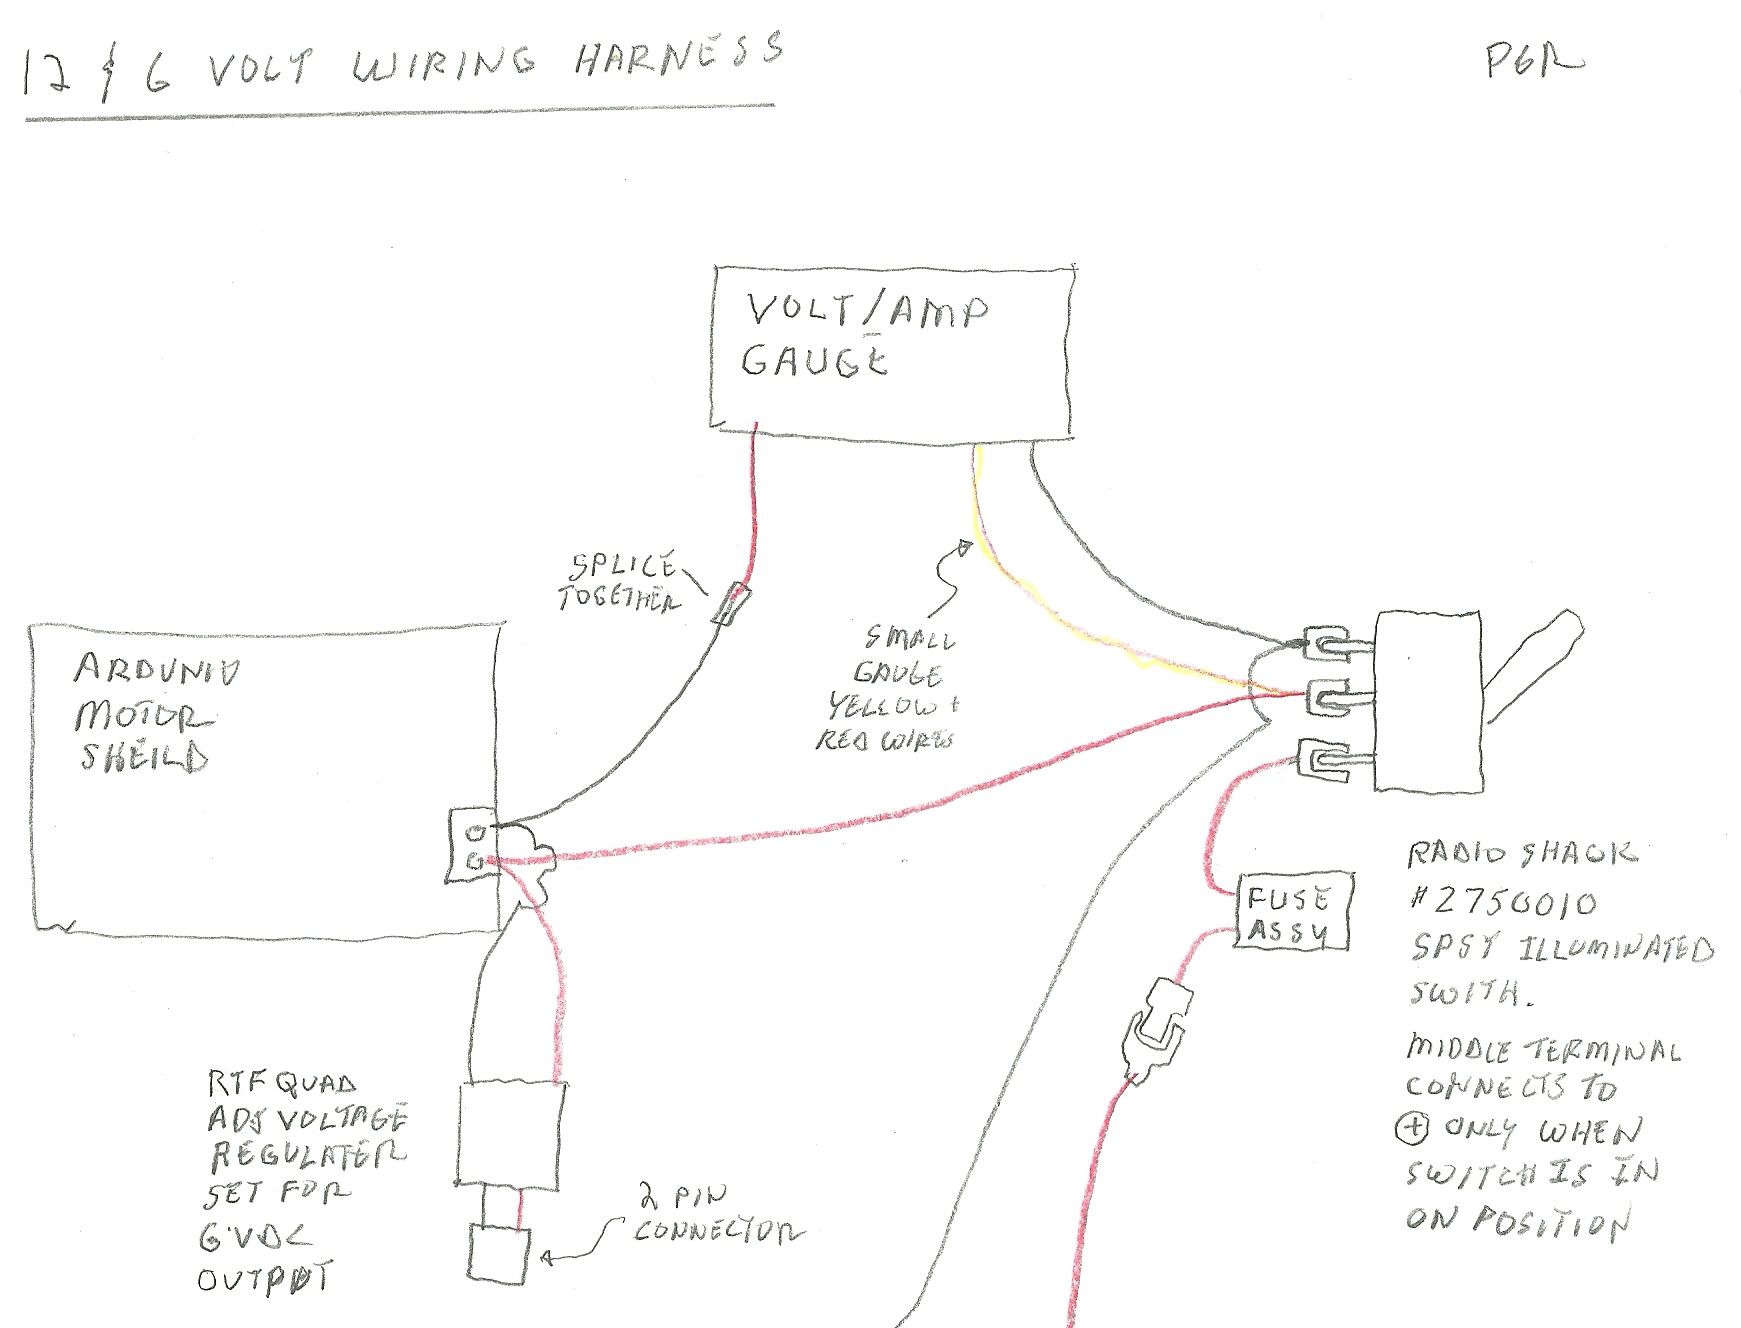 12 & 6 VOLT WIRING HARNESS
PGR
VOLT/AMP
GAUGE
SPLICE
TOGETHER
SMALL
GAUGE
YELLOW +
RED WIRES
ARDUNIO
MOTOR
SHEILD
FUSE
ASSY
RADIO SHACK
#2750010
SPST ILLUMINATED
SWITH.
MIDDLE TERMINAL
CONNECTS TO
+ ONLY WHEN
SWITCH IS IN
ON POSITION
RTF QUAD
ADJ VOLTAGE
REGULATER
SET FOR
6 VDC
OUTPUT
2 PIN
CONNECTOR